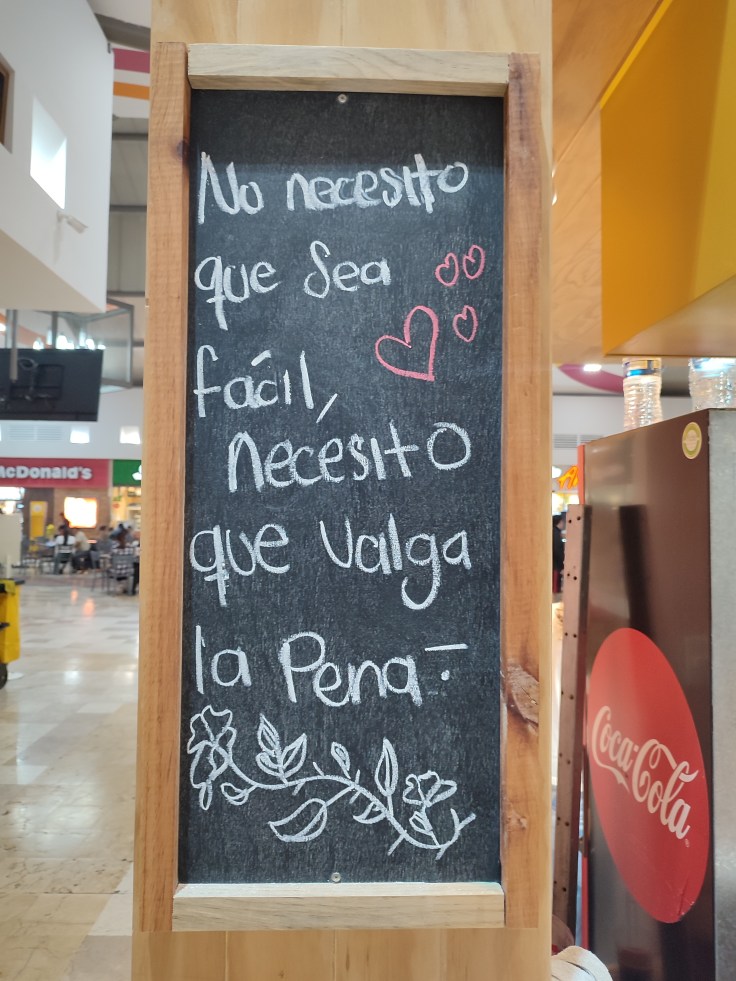 No necesito
que sea
fácil,
necesito
que valga
la Pena.
McDonald's
Coca-Cola